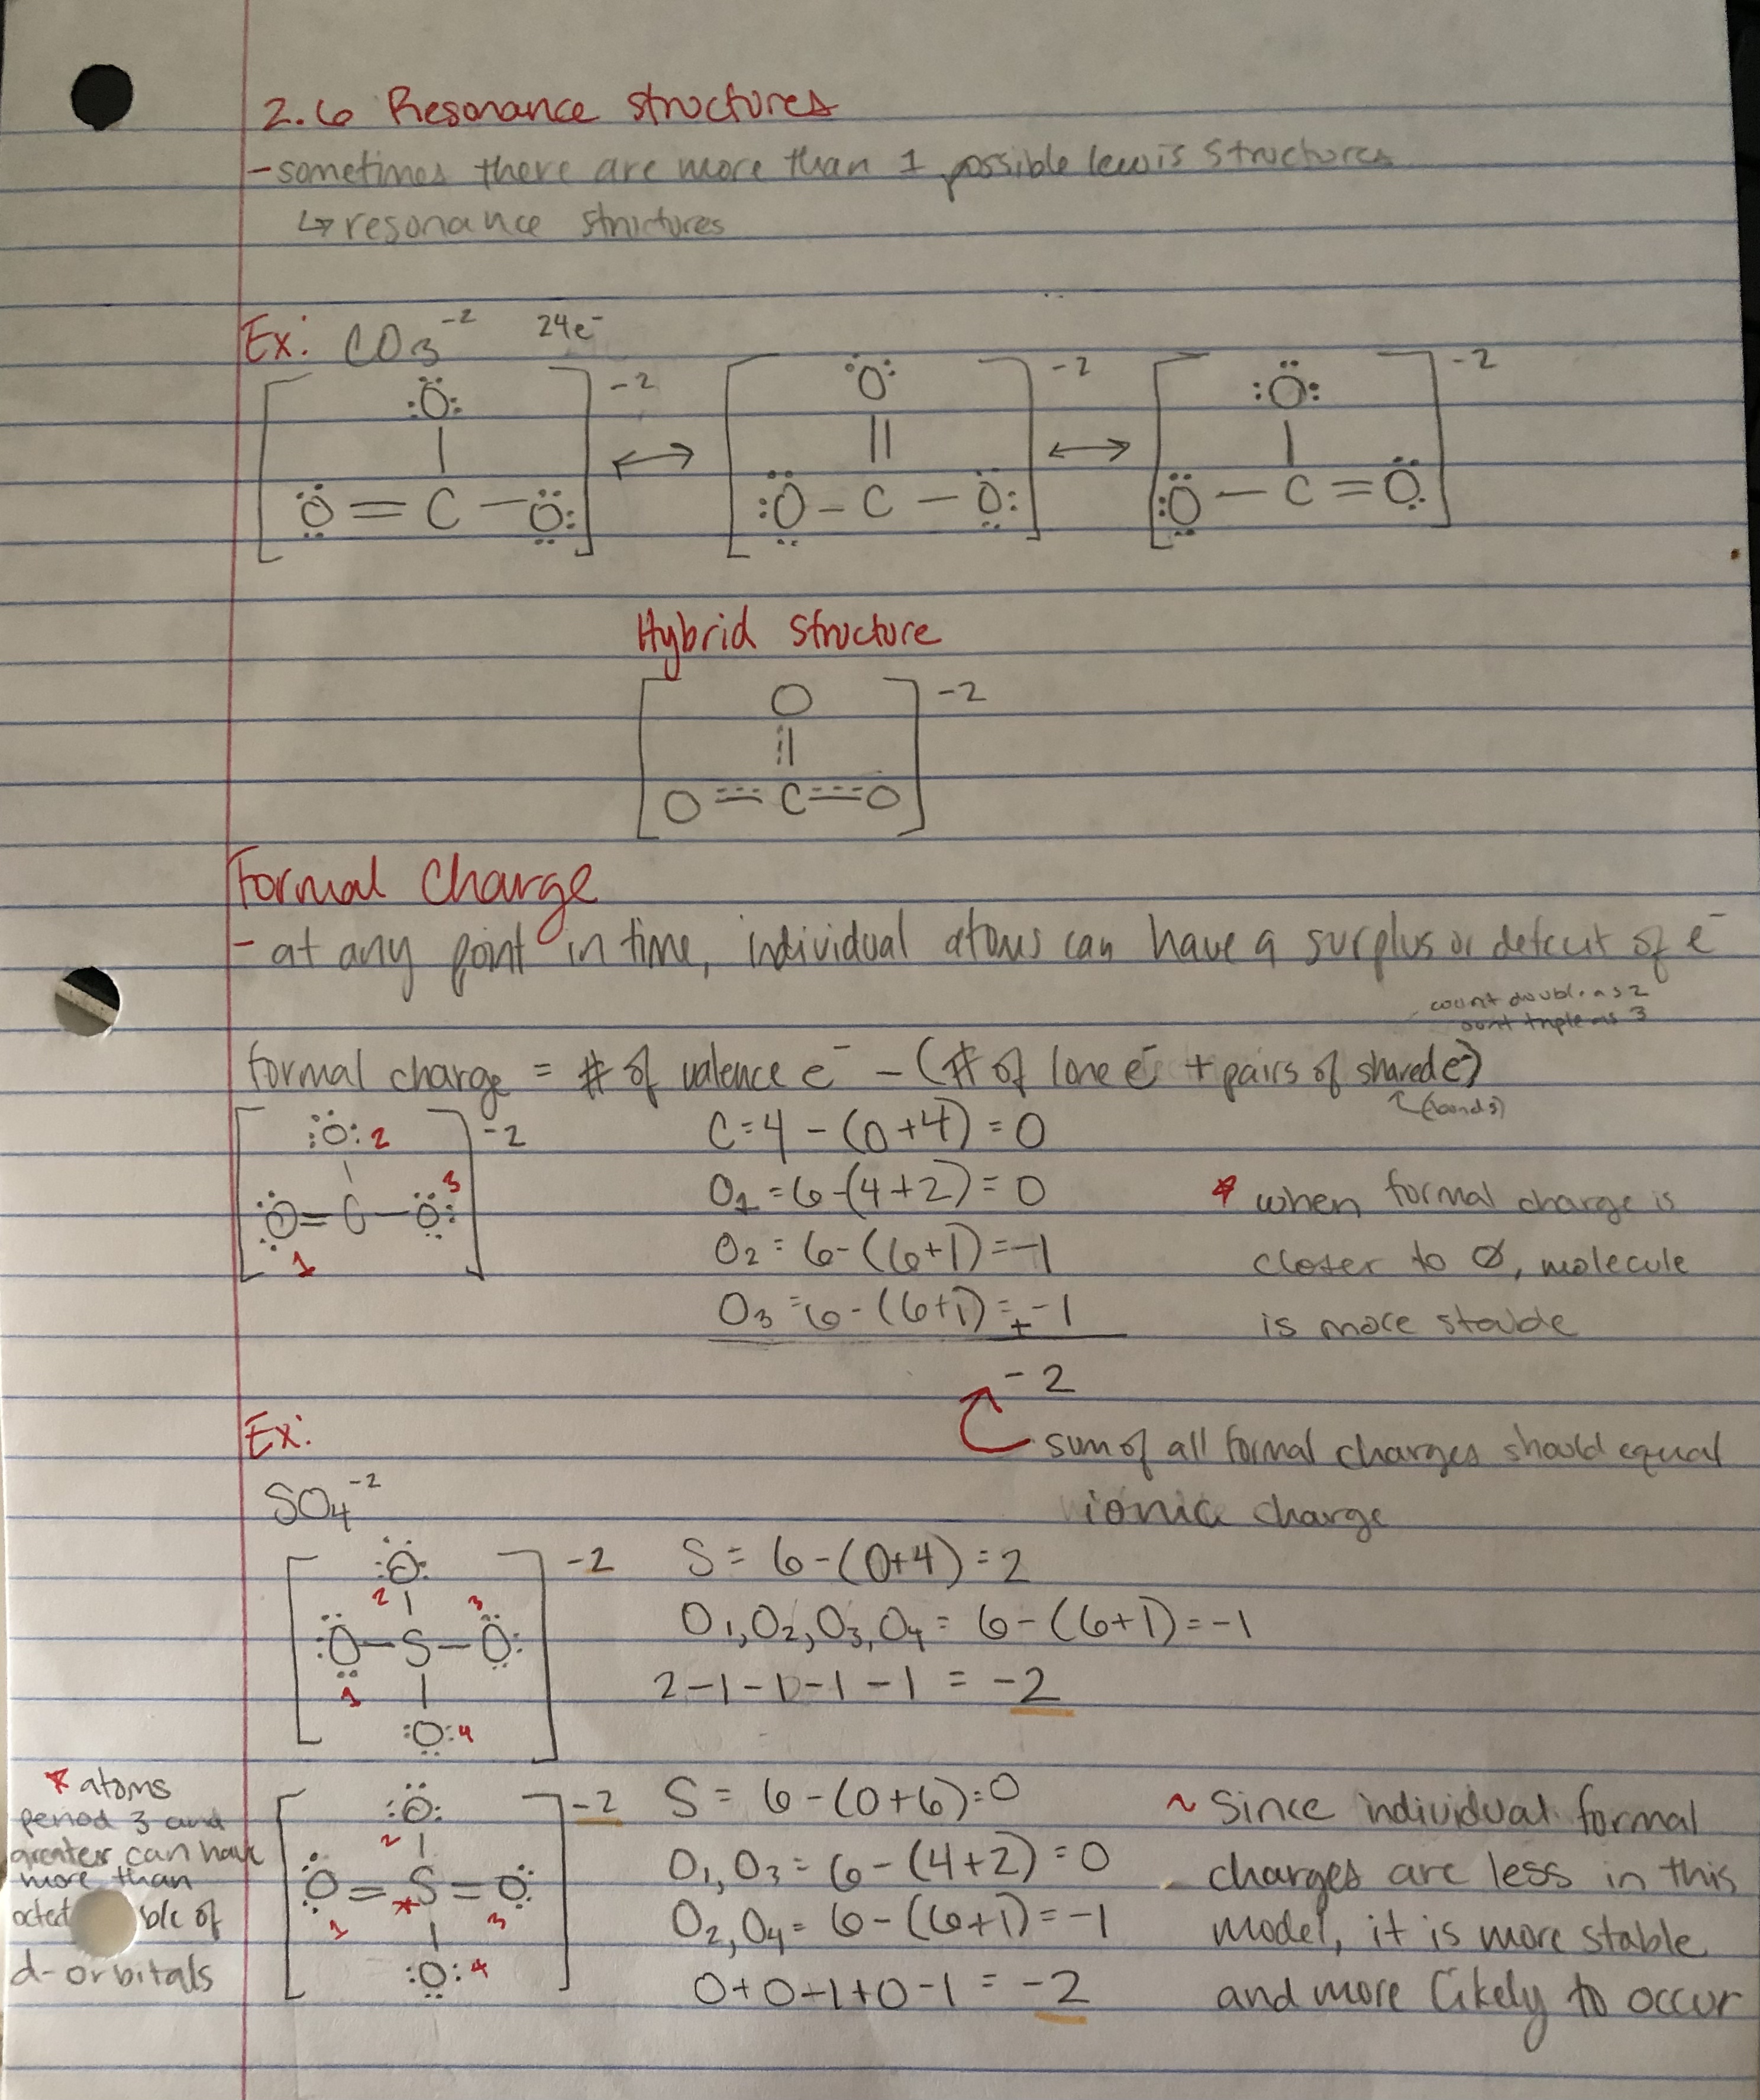 2.6 Resonance structures
- sometimes there are more than 1 possible lewis structures
↳ resonance structures
Ex: CO₃⁻² 24e⁻
:Ö: -2 :O: -2 :Ö: -2
| ↔ || ↔ |
Ö = C - Ö: :Ö - C - Ö: :Ö - C = Ö
Hybrid Structure
O -2
||
O == C == O
Formal Charge
- at any point in time, individual atoms can have a surplus or defecit of e⁻
count double as 2
count triple as 3
formal charge = # of valence e⁻ - (# of lone e⁻ + pairs of shared e⁻)
↑(bonds)
:Ö: 2 -2
|
Ö = C - Ö: 3
1
C = 4 - (0+4) = 0
O₁ = 6-(4+2) = 0
O₂ = 6-(6+1) = -1
O₃ = 6-(6+1) = + -1
-2
* when formal charge is
closer to Ø, molecule
is more stable
sum of all formal charges should equal
ionic charge
Ex:
SO₄⁻²
:Ö: -2
2 | 3
:Ö - S - Ö:
1 |
:O: 4
S = 6-(0+4) = 2
O₁, O₂, O₃, O₄ = 6-(6+1) = -1
2-1-1-1-1 = -2
* atoms
period 3 and
greater can have
more than
octet ble of
d-orbitals
:Ö: -2
2 |
Ö = S = Ö
1 * | 3
:O: 4
S = 6-(0+6) = 0
O₁, O₃ = 6-(4+2) = 0
O₂, O₄ = 6-(6+1) = -1
0+0-1+0-1 = -2
~ Since individual formal
charges are less in this
model, it is more stable
and more likely to occur